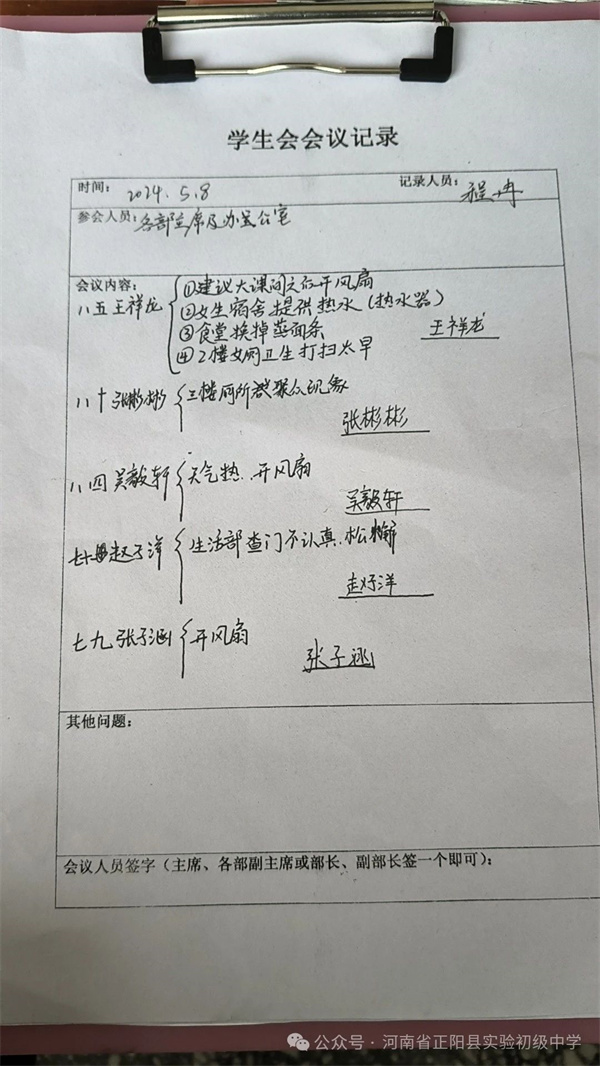 学生会会议记录
时间： 2024.5.8 记录人员：程冉
参会人员：各部主席及办公室
会议内容：
八五 王祥龙
①建议大课间之后开风扇
②女生宿舍提供热水（热水器）
③食堂换掉蒸面条
④2楼女厕卫生打扫太早
王祥龙
八十 张彬彬 三楼厕所聚众现象
张彬彬
八四 吴毅轩 天气热.开风扇
吴毅轩
赵子洋 生活部查门不认真.松懈
赵子洋
七九 张子涵 开风扇
张子涵
其他问题：
会议人员签字（主席、各部副主席或部长、副部长签一个即可）：
公众号·河南省正阳县实验初级中学